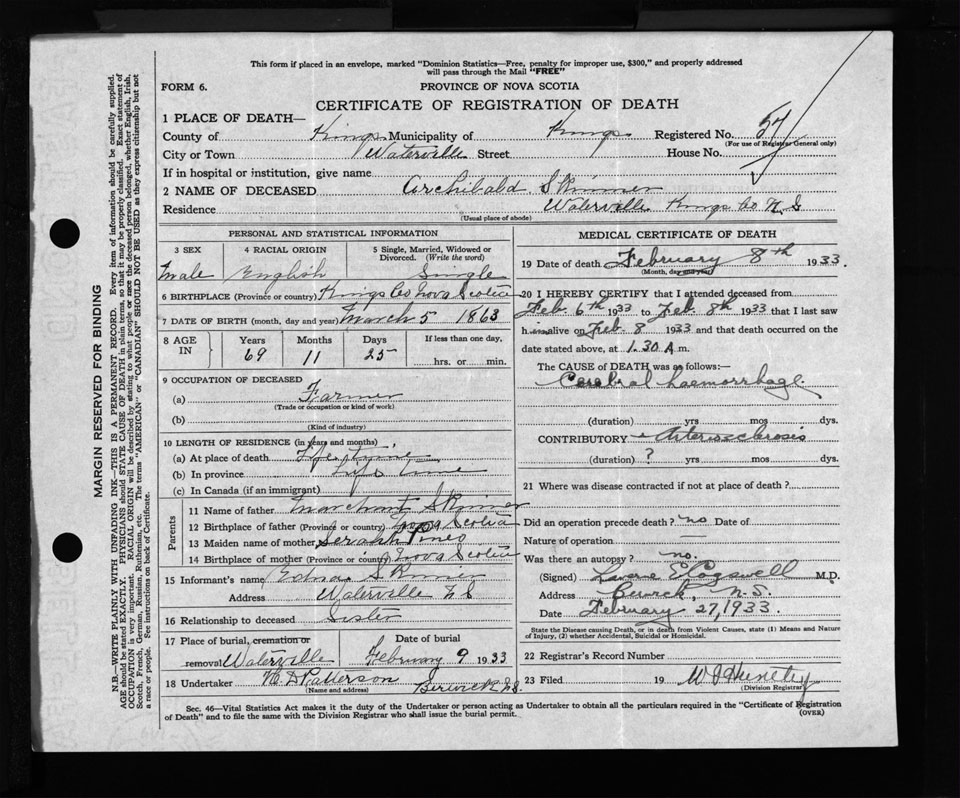 This form if placed in an envelope, marked "Dominion Statistics—Free, penalty for improper use, $300," and properly addressed
will pass through the Mail "FREE"
FORM 6.
PROVINCE OF NOVA SCOTIA
CERTIFICATE OF REGISTRATION OF DEATH
1 PLACE OF DEATH—
County of Kings Municipality of Kings Registered No. 57
(For use of Registrar General only)
City or Town Waterville Street House No.
If in hospital or institution, give name
2 NAME OF DECEASED Archibald Skinner
Residence Waterville Kings Co N.S
(Usual place of abode)
PERSONAL AND STATISTICAL INFORMATION
3 SEX 4 RACIAL ORIGIN 5 Single, Married, Widowed or
Divorced. (Write the word)
Male English Single
6 BIRTHPLACE (Province or country) Kings Co Nova Scotia
7 DATE OF BIRTH (month, day and year) March 5 1863
8 AGE IN Years Months Days If less than one day,
69 11 25 hrs. or min.
9 OCCUPATION OF DECEASED
(a) Farmer
(Trade or occupation or kind of work)
(b)
(Kind of industry)
10 LENGTH OF RESIDENCE (in years and months)
(a) At place of death Life time
(b) In province Life time
(c) In Canada (if an immigrant)
Parents
11 Name of father Marchant Skinner
12 Birthplace of father (Province or country) Nova Scotia
13 Maiden name of mother Serahh Pineo
14 Birthplace of mother (Province or country) Nova Scotia
15 Informant's name Edna Skinner
Address Waterville N S
16 Relationship to deceased Sister
17 Place of burial, cremation or Date of burial
removal Waterville February 9 1933
18 Undertaker W. D Patterson Berwick N.S.
(Name and address)
MEDICAL CERTIFICATE OF DEATH
19 Date of death February 8th 1933.
(Month, day and year)
20 I HEREBY CERTIFY that I attended deceased from
Feb. 6th 1933 to Feb. 8th 1933 that I last saw
him alive on Feb 8 1933 and that death occurred on the
date stated above, at 1.30 A m.
The CAUSE OF DEATH was as follows:
Cerebral haemorrhage.
(duration) yrs mos dys.
CONTRIBUTORY Arteriosclerosis
(duration) ? yrs mos dys.
21 Where was disease contracted if not at place of death?
Did an operation precede death? no Date of
Nature of operation —
Was there an autopsy? no.
(Signed) E Cogswell M.D.
Address Berwick, N.S.
Date February 27, 1933.
State the Disease causing Death, or in death from Violent Causes, state (1) Means and Nature
of Injury, (2) whether Accidental, Suicidal or Homicidal.
22 Registrar's Record Number
23 Filed 19
(Division Registrar)
Sec. 46—Vital Statistics Act makes it the duty of the Undertaker or person acting as Undertaker to obtain all the particulars required in the "Certificate of Registration
of Death" and to file the same with the Division Registrar who shall issue the burial permit.
(OVER)
MARGIN RESERVED FOR BINDING
N.B.—WRITE PLAINLY WITH UNFADING INK—THIS IS A PERMANENT RECORD. Every item of information should be carefully supplied.
AGE should be stated EXACTLY. PHYSICIANS should STATE CAUSE OF DEATH in plain terms, so that it may be properly classified. Exact statement of
OCCUPATION is very important. RACIAL ORIGIN will be described by stating to what people or race the deceased person belonged, whether English, Irish,
Scotch, French, German, Russian, Ruthenian, etc. The terms "AMERICAN" or "CANADIAN" SHOULD NOT BE USED as they express citizenship but not
a race or people. See instructions on back of Certificate.